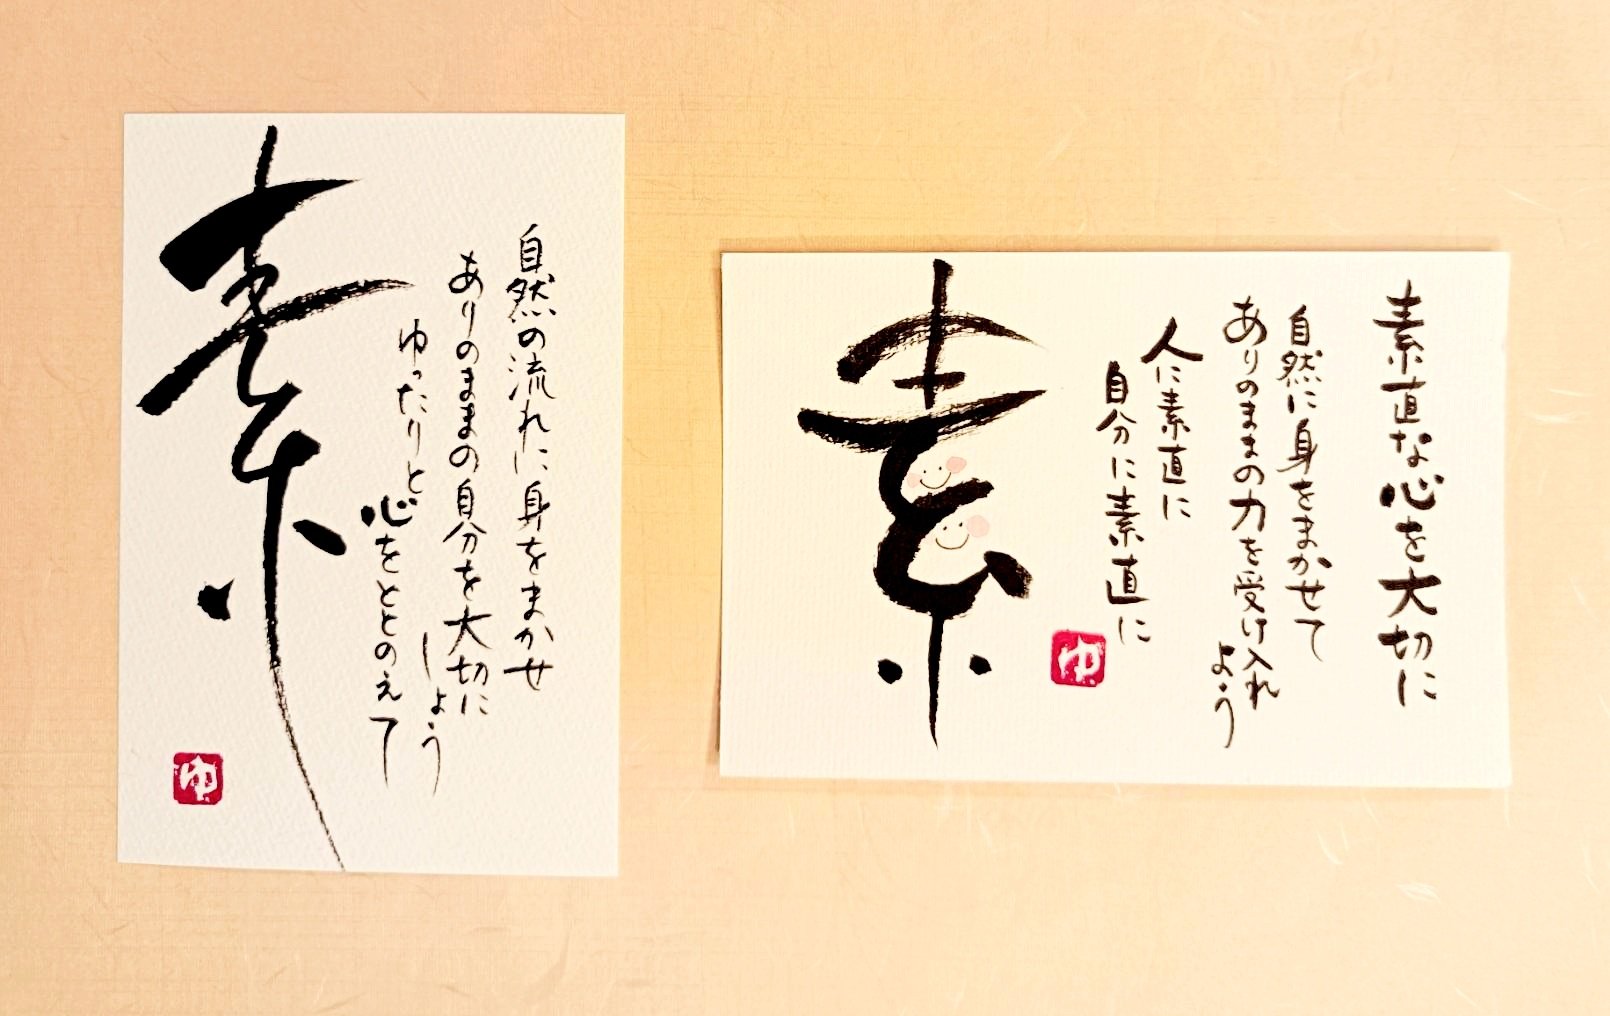 自然の流れに身をまかせ
ありのままの自分を大切に
しよう
ゆったりと
心をととのえて
素
ゆ
素直な心を大切に
自然に身をまかせて
ありのままの力を受け入れ
よう
人に素直に
自分に素直に
素
ゆ